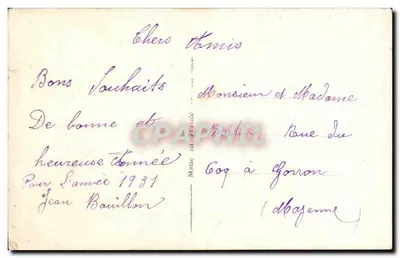 Chers Amis
Bons Souhaits
De bonne et
heureuse Année
Pour L'année 1931
Jean Bouillon
Monsieur et Madame
Rue du
Coq à Gorron
(Mayenne)
CPAPHIL